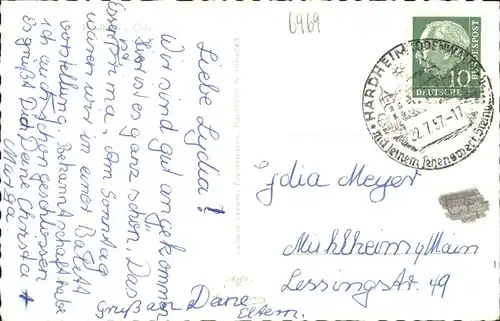 6969
Liebe Lydia!
Wir sind gut angekommen
Hier ist es ganz schön. Das
Essen prima. Am Sonntag
waren wir in einer Ballett
vorstellung. Bekanntschaft habe
ich auch schon geschlossen
Es grüßt Dich Deine Christa +
Marga
Gruß an Deine
Eltern.
10
DEUTSCHE
BUNDESPOST
HARDHEIM (ODENWALD)
22.7.57.-17
mit seinem sehenswerten
Lydia Meyer
Mühlheim/Main
Lessingstr. 49